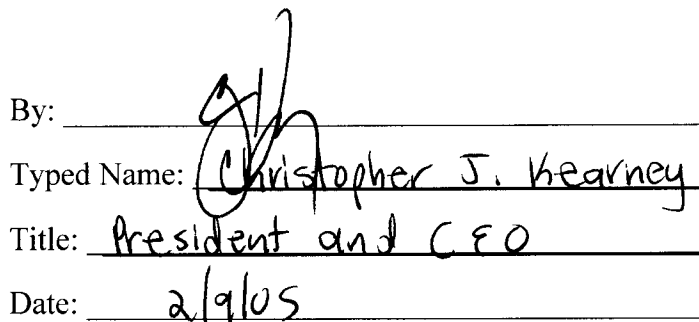 By:
Typed Name: Christopher J. Kearney
Title: President and CEO
Date: 2/9/05